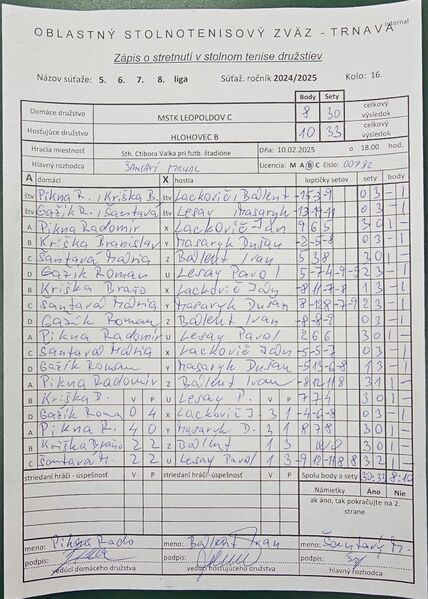 Internal
OBLASTNÝ STOLNOTENISOVÝ ZVÄZ - TRNAVA
Zápis o stretnutí v stolnom tenise družstiev
Názov súťaže: 5. 6. 7. 8. liga Súťaž. ročník 2024/2025 Kolo: 16.
Body Sety
Domáce družstvo MSTK LEOPOLDOV C 8 30 celkový výsledok
Hosťujúce družstvo HLOHOVEC B 10 33 celkový výsledok
Hracia miestnosť Sth. Ctibora Valka pri futb. štadióne Dňa: 10.02.2025 o 18.00 hod.
Hlavný rozhodca ŠANTAVÝ Licencia: M A B C číslo: 00792
A domáci X hostia loptičky setov sety body
štv Pikna R. / Kriška B. štv Lackovič / Bállent -15-3-9 0 3 - 1
štv Gažík R. / Šantavá štv Lesay Masaryk 0 3 - 1
A Pikna Radomír X Lackovič Ján 9 6 5 3 0 1 -
B Kriška Branislav Y Masaryk Dušan -2-5-8 0 3 - 1
C Šantavá Mária Z Bállent Ivan 5 3 8 3 0 1 -
D Gažík Roman U Lesay Pavol 5-7 4-9-9 2 3 - 1
B Kriška Braňo X Lackovič Ján -8 11-7-8 1 3 - 1
C Šantavá Mária Y Masaryk Dušan 2 3 - 1
D Gažík Roman Z Bállent Ivan -8-8-9 0 3 - 1
A Pikna Radomír U Lesay Pavol 2 6 6 3 0 1 -
C Šantavá Mária X Lackovič Ján -5-5-7 0 3 - 1
D Gažík Roman Y Masaryk Dušan 1 3 - 1
A Pikna Radomír Z Bállent Ivan -8 12 11 8 3 1 1 -
B Kriška B. V P U Lesay P. V P 7 7 4 3 0 1 -
D Gažík Roma 0 4 X Lackovič J. 3 1 -4-6-8 0 3 - 1
A Pikna R. 4 0 Y Masaryk D. 3 1 8 7 8 3 0 1 -
B Kriška Braňo 2 2 Z Bállent 1 3 3 0 1 -
C Šantavá M. 2 2 U Lesay Pavol 1 3 -9 12 -11 8 8 3 2 1 -
striedaní hráči - úspešnosť V P striedaní hráči - úspešnosť V P Spolu body a sety 30:33 8:10
Námietky Áno Nie
ak áno, tak pokračujte na 2. strane
meno: Pikna Rado meno: Bállent Ivan meno: Šantavý M.
podpis: podpis: podpis:
vedúci domáceho družstva vedúci hosťujúceho družstva hlavný rozhodca